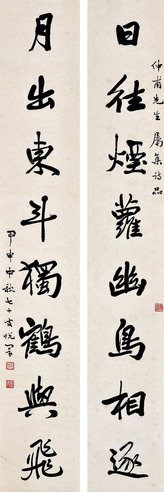 仲甫先生屬集詩品
日往煙蘿幽鳥相逐
月出東斗獨鶴與飛
甲申中秋七十叟